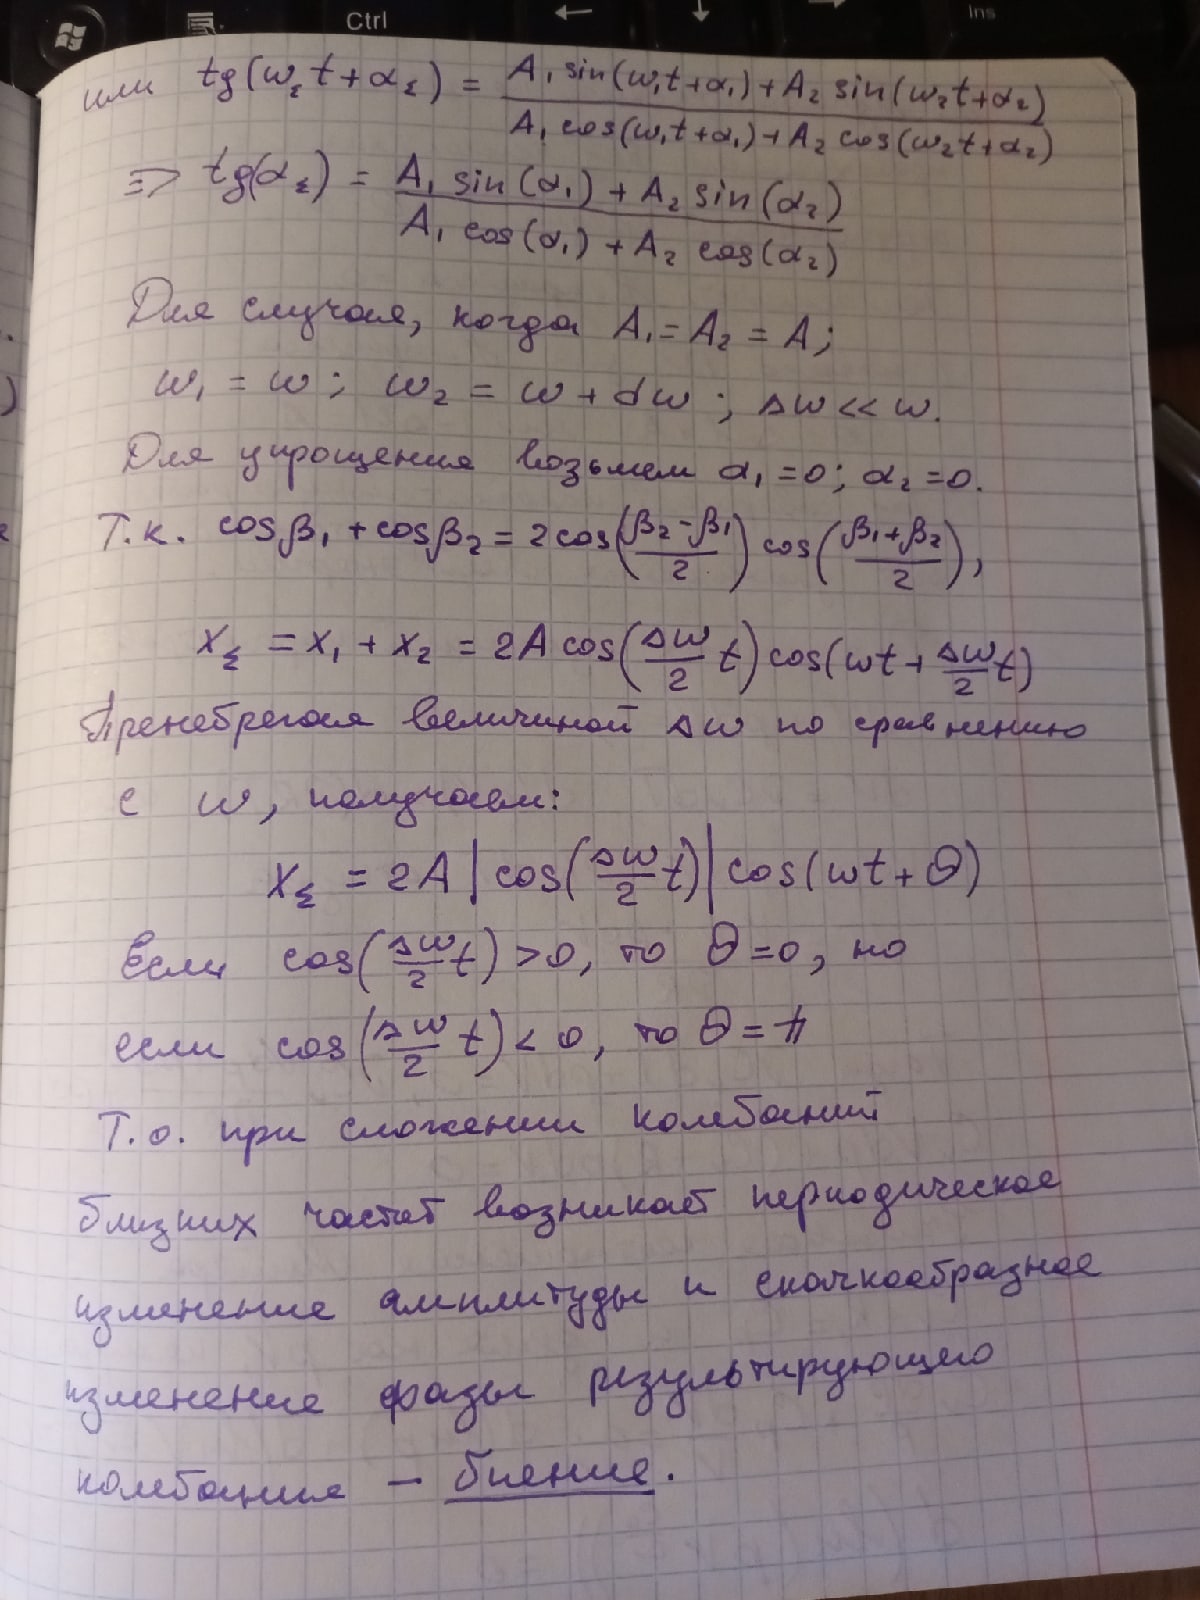 Ctrl
Ins
или tg(ω_Σ t+α_Σ) = (A₁ sin(ω₁t+α₁)+A₂ sin(ω₂t+α₂))/(A₁ cos(ω₁t+α₁)+A₂ cos(ω₂t+α₂))
=> tg(α_Σ) = (A₁ sin(α₁)+A₂ sin(α₂))/(A₁ cos(α₁)+A₂ cos(α₂))
Для случая, когда A₁=A₂=A;
ω₁=ω; ω₂=ω+dω; Δω<<ω.
Для упрощения возьмем α₁=0; α₂=0.
Т.к. cosβ₁+cosβ₂=2cos((β₂-β₁)/2) cos((β₁+β₂)/2),
X_Σ = X₁+X₂ = 2A cos(Δω/2 t) cos(ωt+Δω/2 t)
Пренебрегая величиной Δω по сравнению
с ω, получаем:
X_Σ = 2A|cos(Δω/2 t)|cos(ωt+Θ)
Если cos(Δω/2 t)>0, то Θ=0, но
если cos(Δω/2 t)<0, то Θ=π
Т.о. при сложении колебаний
близких частот возникает периодическое
изменение амплитуды и скачкообразное
изменение фазы результирующего
колебания – биение.